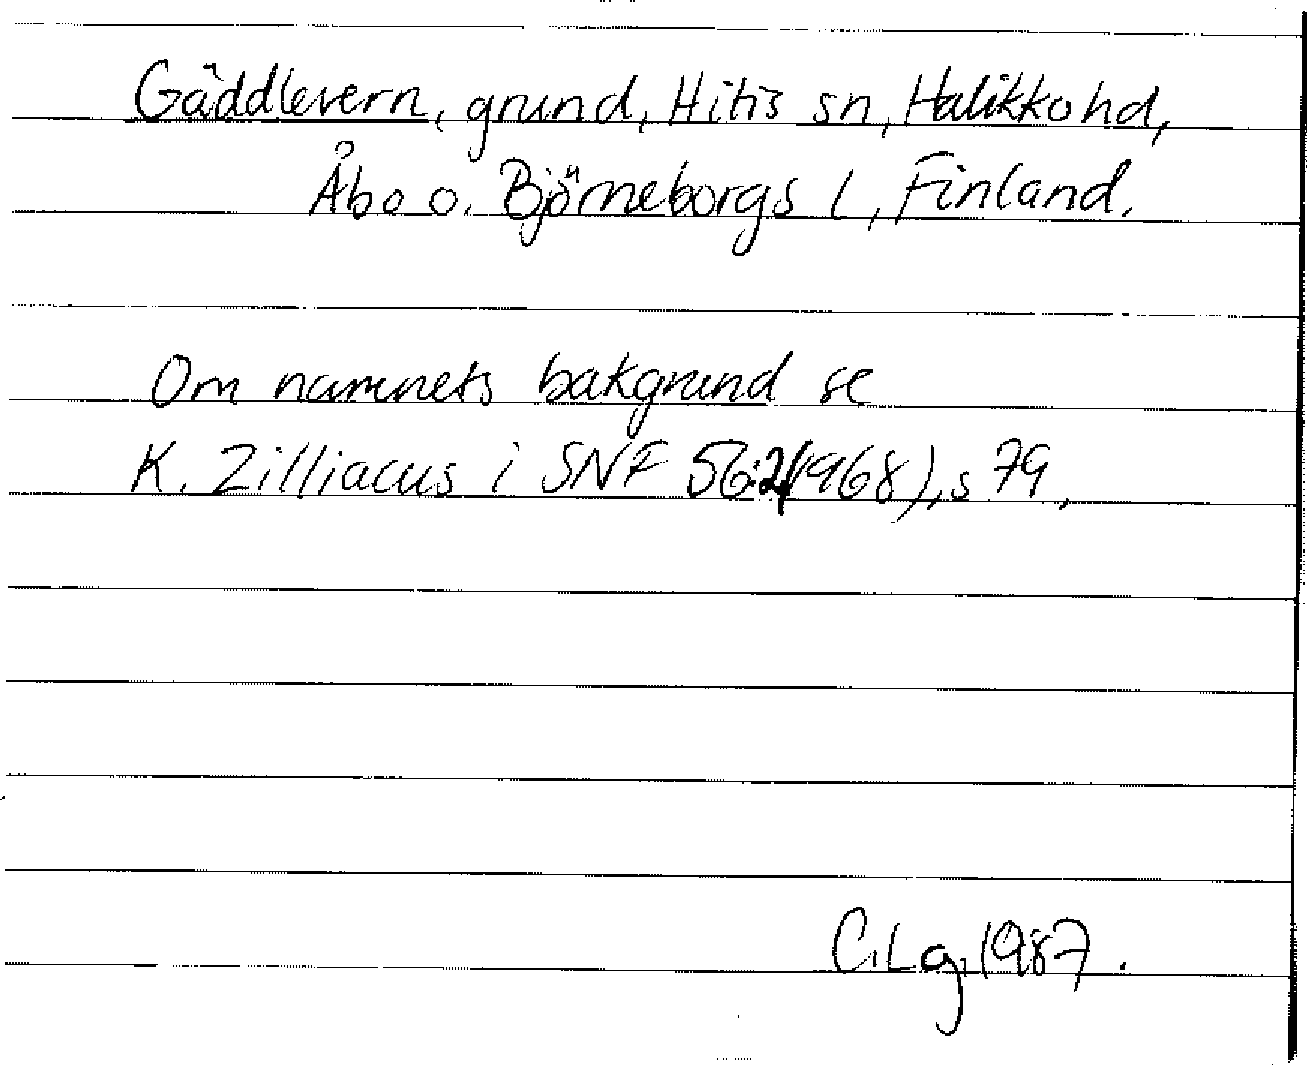 Gäddlevern, grund, Hitis sn, Halikko hd,
Åbo o. Björneborgs l, Finland.
Om namnets bakgrund se
K. Zilliacus i SNF 56:2(1968), s 79.
C.Lg. 1987.